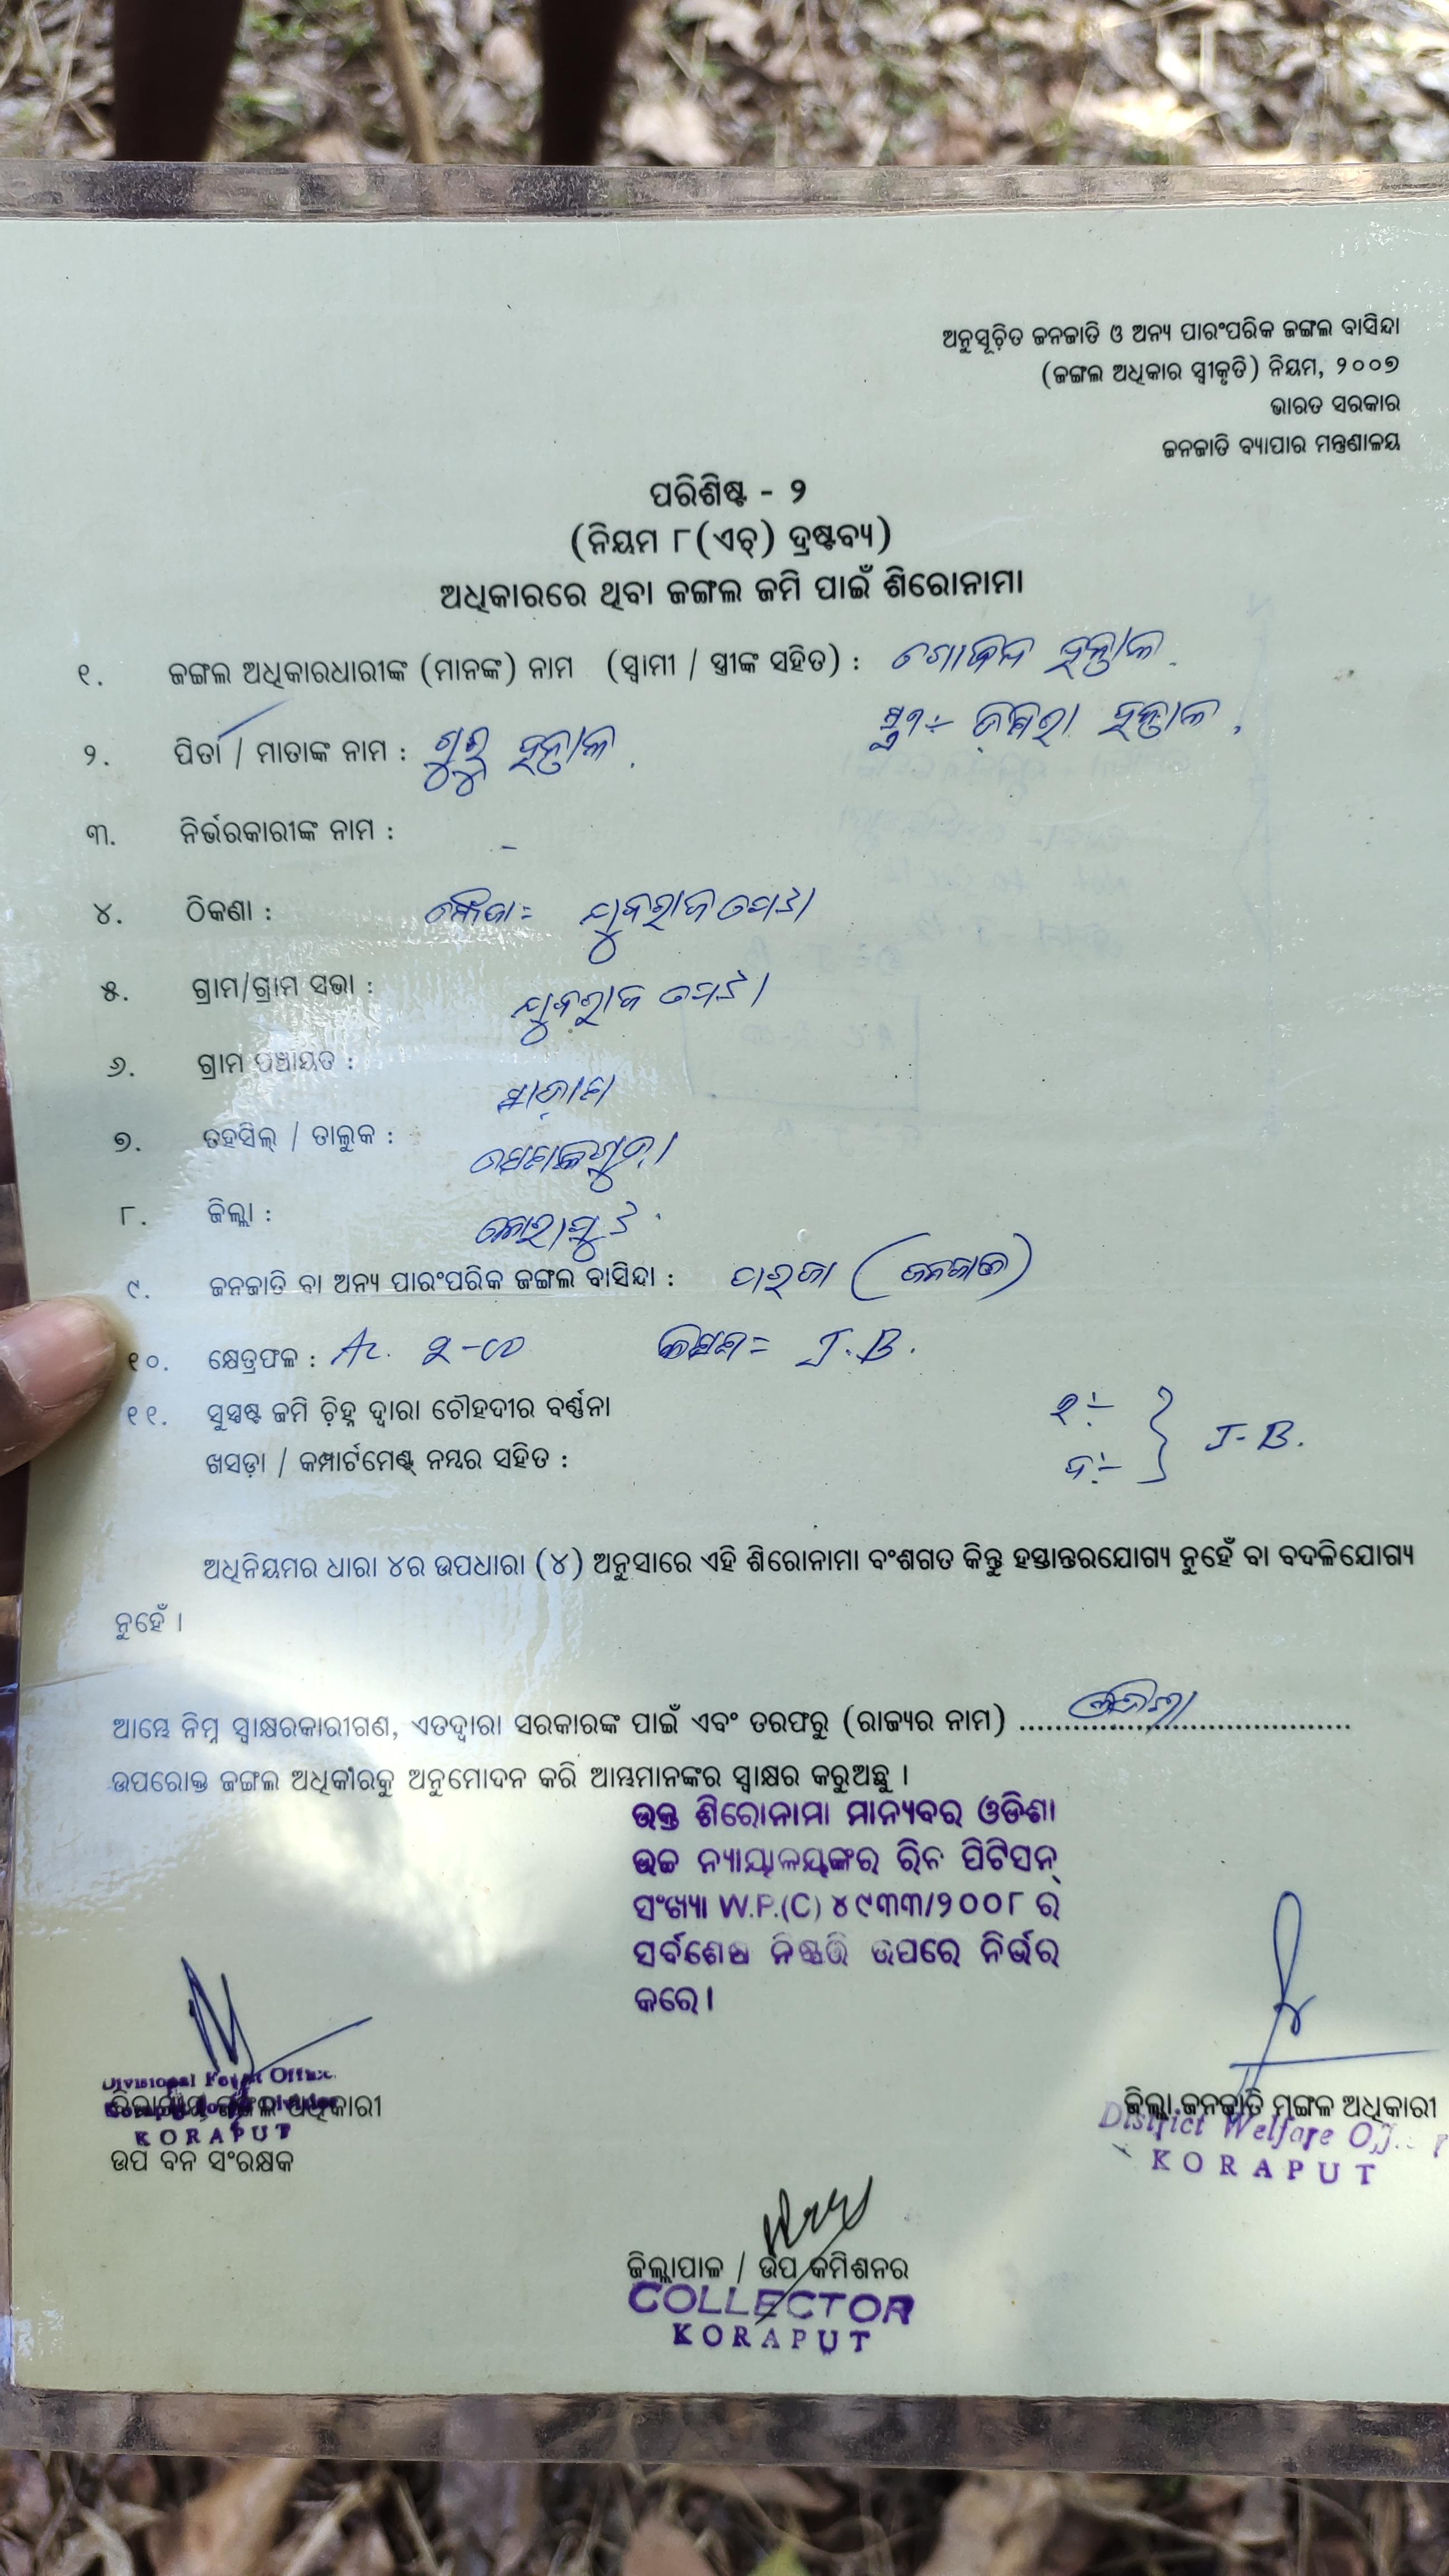 ଅନୁସୂଚିତ ଜନଜାତି ଓ ଅନ୍ୟ ପାରଂପରିକ ଜଙ୍ଗଲ ବାସିନ୍ଦା
(ଜଙ୍ଗଲ ଅଧିକାର ସ୍ୱୀକୃତି) ନିୟମ, ୨୦୦୭
ଭାରତ ସରକାର
ଜନଜାତି ବ୍ୟାପାର ମନ୍ତ୍ରଣାଳୟ
ପରିଶିଷ୍ଟ - ୨
(ନିୟମ ୮(ଏଚ୍) ଦ୍ରଷ୍ଟବ୍ୟ)
ଅଧିକାରରେ ଥିବା ଜଙ୍ଗଲ ଜମି ପାଇଁ ଶିରୋନାମା
୧. ଜଙ୍ଗଲ ଅଧିକାରଧାରୀଙ୍କ (ମାନଙ୍କ) ନାମ (ସ୍ୱାମୀ / ସ୍ତ୍ରୀଙ୍କ ସହିତ) : ହନ୍ତାଳ
ହନ୍ତାଳ
୨. ପିତା / ମାତାଙ୍କ ନାମ : ଗୁରୁ ହନ୍ତାଳ
୩. ନିର୍ଭରକାରୀଙ୍କ ନାମ : -
୪. ଠିକଣା : ମୌଜା=
୫. ଗ୍ରାମ/ଗ୍ରାମ ସଭା :
୬. ଗ୍ରାମ ପଞ୍ଚାୟତ :
୭. ତହସିଲ୍ / ତାଲୁକ :
୮. ଜିଲ୍ଲା : କୋରାପୁଟ
୯. ଜନଜାତି ବା ଅନ୍ୟ ପାରଂପରିକ ଜଙ୍ଗଲ ବାସିନ୍ଦା : ପାରଜା (ଜନଜାତି)
୧୦. କ୍ଷେତ୍ରଫଳ : Ac. କିସମ= J.B.
୧୧. ସୁସ୍ପଷ୍ଟ ଜମି ଚିହ୍ନ ଦ୍ୱାରା ଚୌହଦୀର ବର୍ଣ୍ଣନା
ଖସଡ଼ା / କମ୍ପାର୍ଟମେଣ୍ଟ୍ ନମ୍ବର ସହିତ : J-B.
ଅଧିନିୟମର ଧାରା ୪ର ଉପଧାରା (୪) ଅନୁସାରେ ଏହି ଶିରୋନାମା ବଂଶଗତ କିନ୍ତୁ ହସ୍ତାନ୍ତରଯୋଗ୍ୟ ନୁହେଁ ବା ବଦଳିଯୋଗ୍ୟ
ନୁହେଁ ।
ଆମ୍ଭେ ନିମ୍ନ ସ୍ୱାକ୍ଷରକାରୀଗଣ, ଏତଦ୍ୱାରା ସରକାରଙ୍କ ପାଇଁ ଏବଂ ତରଫରୁ (ରାଜ୍ୟର ନାମ) ଓଡିଶା
ଉପରୋକ୍ତ ଜଙ୍ଗଲ ଅଧିକାରକୁ ଅନୁମୋଦନ କରି ଆମ୍ଭମାନଙ୍କର ସ୍ୱାକ୍ଷର କରୁଅଛୁ ।
ଉକ୍ତ ଶିରୋନାମା ମାନ୍ୟବର ଓଡିଶା
ଉଚ୍ଚ ନ୍ୟାୟାଳୟଙ୍କର ରିଟ ପିଟିସନ୍
ସଂଖ୍ୟା W.P.(C) ୪୯୩୩/୨୦୦୮ ର
ସର୍ବଶେଷ ନିଷ୍ପତ୍ତି ଉପରେ ନିର୍ଭର
କରେ।
Divisional Forest Officer
KORAPUT
ଉପ ବନ ସଂରକ୍ଷକ
ଜିଲ୍ଲା ଜନଜାତି ମଙ୍ଗଳ ଅଧିକାରୀ
District Welfare
KORAPUT
ଜିଲ୍ଲାପାଳ / ଉପ କମିଶନର
COLLECTOR
KORAPUT